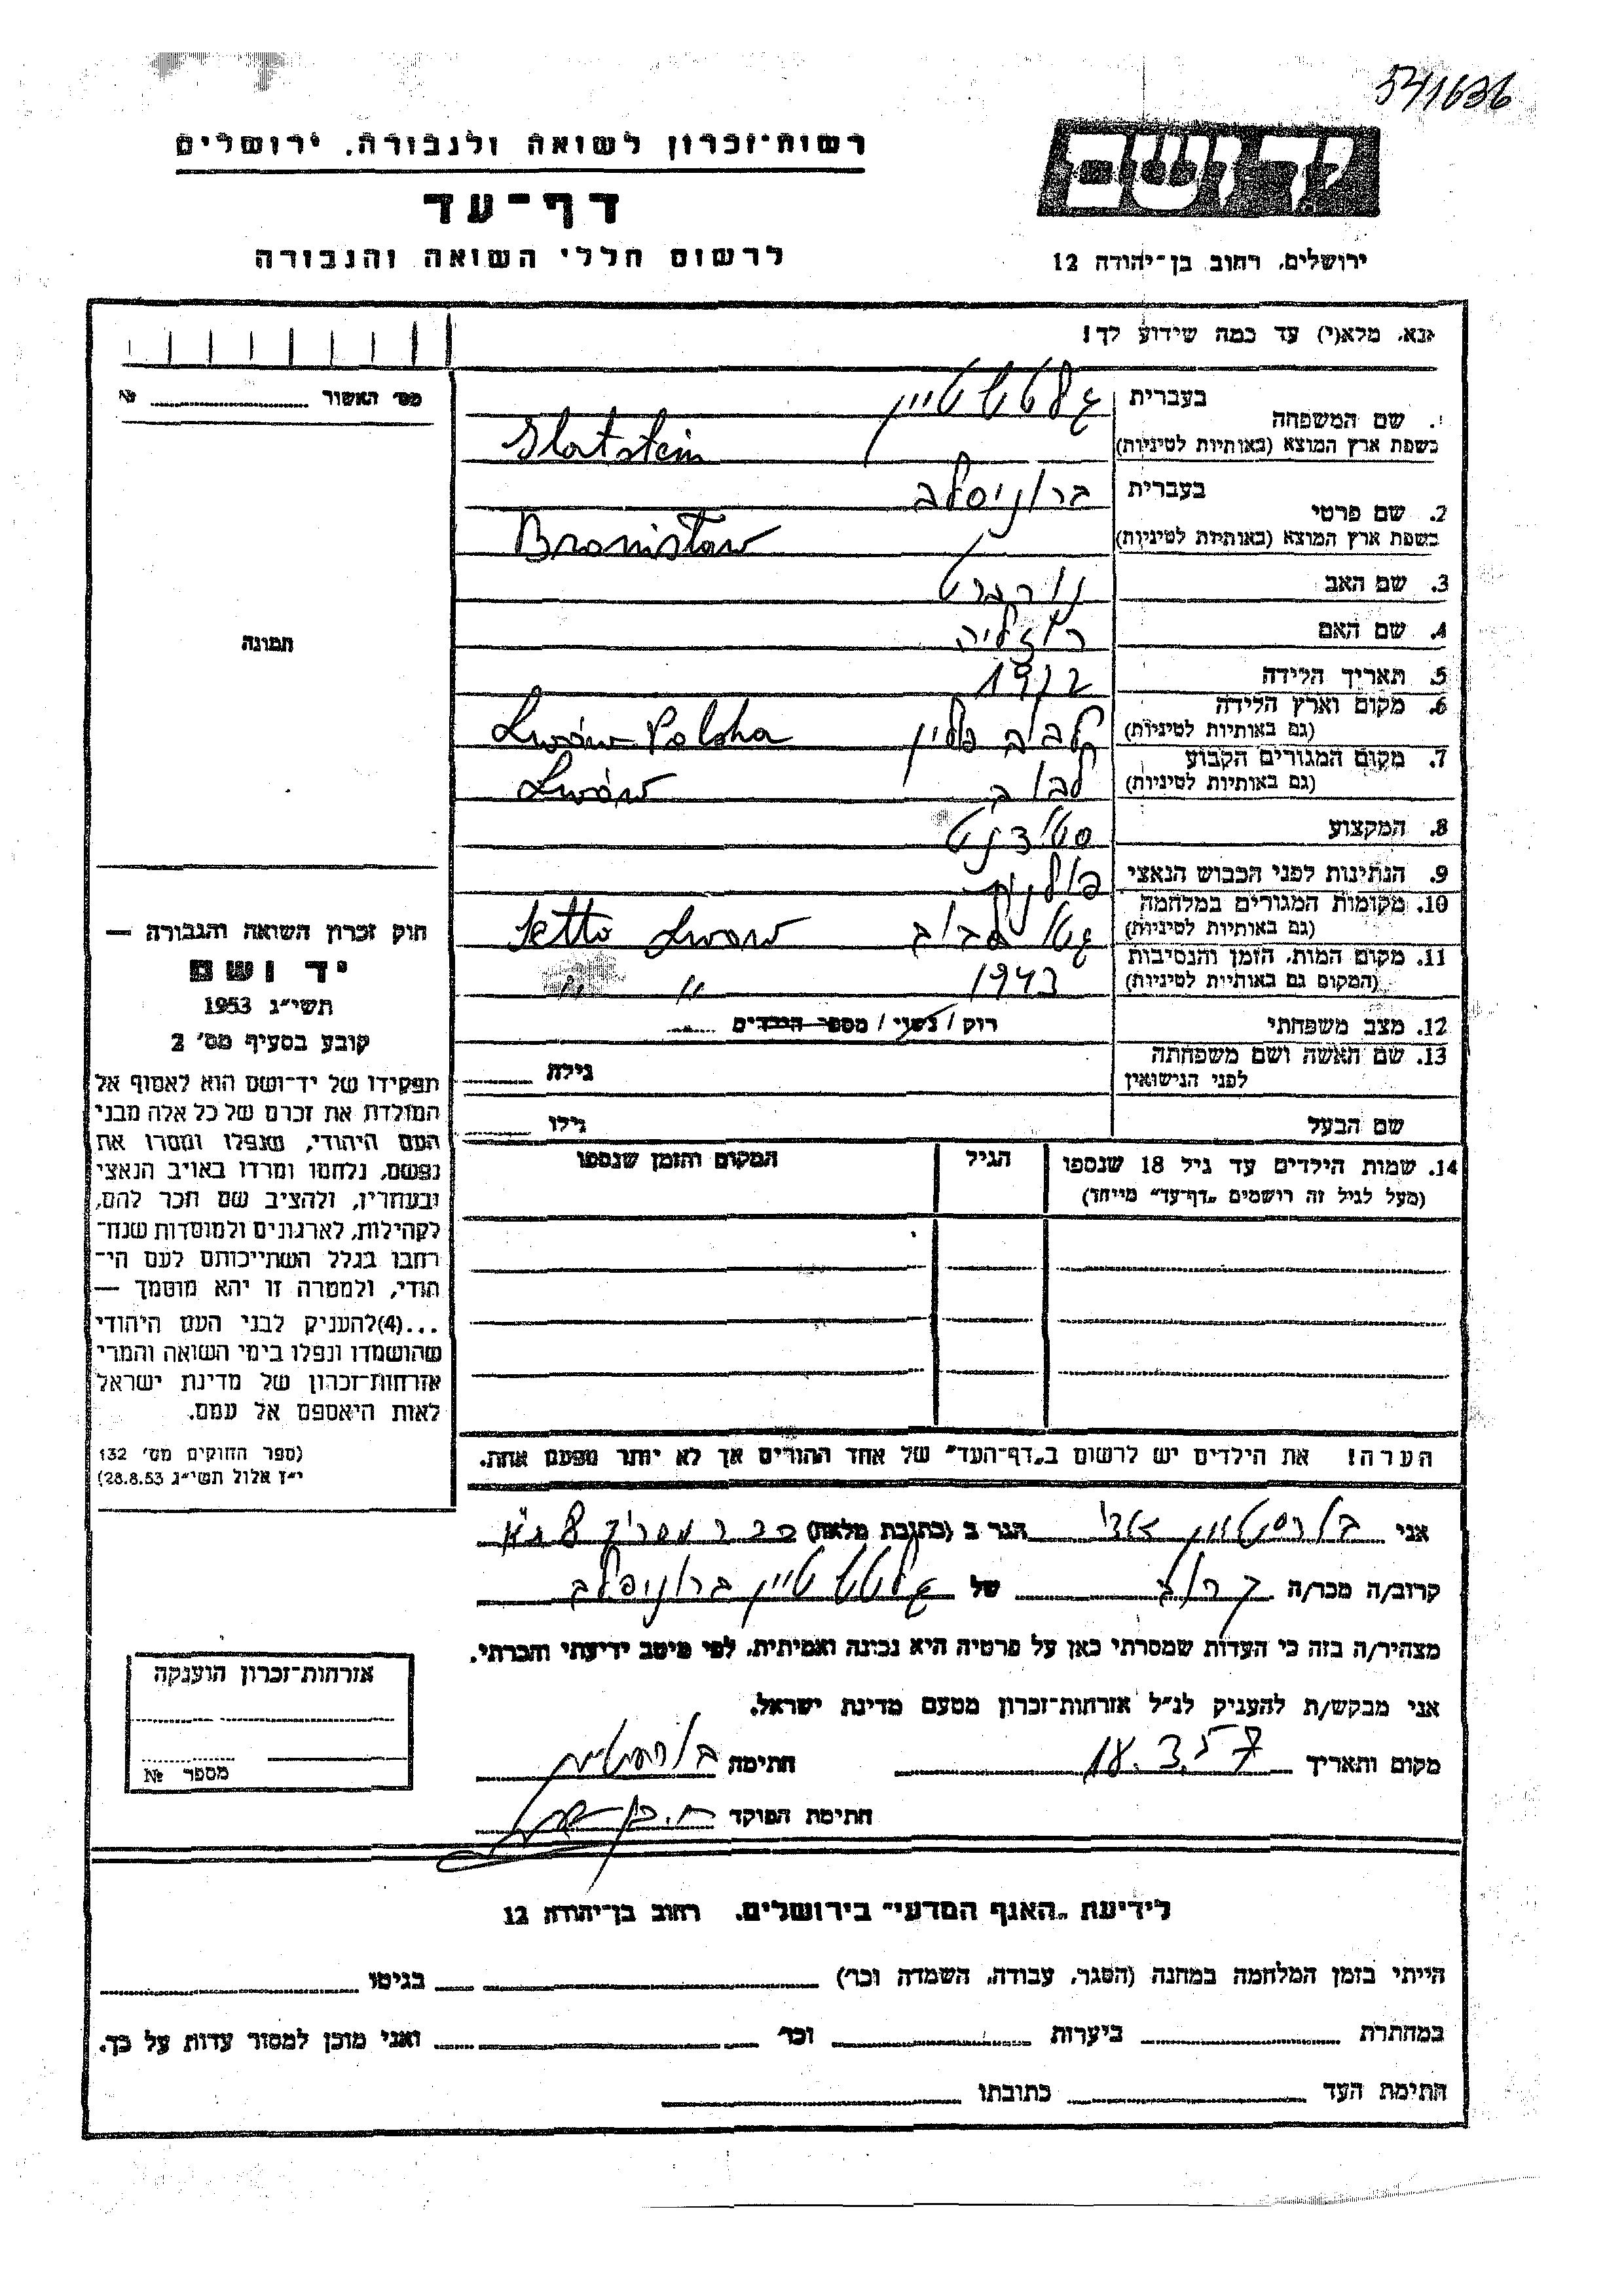 541636
יד ושם
רשות־זכרון לשואה ולגבורה. ירושלים
דף־עד
לרשום חללי השואה והגבורה
ירושלים. רחוב בן־יהודה 12
נא. מלא(י) עד כמה שידוע לך!
מס׳ האשור №
תמונה
1. שם המשפחה
בעברית
בשפת ארץ המוצא (באותיות לטיניות)
Glatstein
2. שם פרטי
בעברית ברוניסלב
בשפת ארץ המוצא (באותיות לטיניות) Bronisław
3. שם האב נורברט
4. שם האם רוזליה
5. תאריך הלידה
6. מקום וארץ הלידה
(גם באותיות לטיניות) פולין Lwów Polska
7. מקום המגורים הקבוע
(גם באותיות לטיניות) לבוב Lwów
8. המקצוע סטודנט
9. הנתינות לפני הכבוש הנאצי פולנית
10. מקומות המגורים במלחמה
(גם באותיות לטיניות) גטו לבוב Getto Lwow
11. מקום המות, הזמן והנסיבות
(המקום גם באותיות לטיניות) 1943 " "
12. מצב משפחתי רוק / נשוי / מספר הילדים
13. שם האשה ושם משפחתה
לפני הנישואין
גילה
שם הבעל גילו
14. שמות הילדים עד גיל 18 שנספו הגיל המקום והזמן שנספו
(מעל לגיל זה רושמים „דף־עד״ מייחד)
הערה! את הילדים יש לרשום ב„דף־העד״ של אחד ההורים אך לא יותר מפעם אחת.
חוק זכרון השואה והגבורה —
יד ושם
תשי״ג 1953
קובע בסעיף מס׳ 2
תפקידו של יד־ושם הוא לאסוף אל
המולדת את זכרם של כל אלה מבני
העם היהודי, שנפלו ומסרו את
נפשם, נלחמו ומרדו באויב הנאצי
ובעוזריו, ולהציב שם וזכר להם,
לקהילות, לארגונים ולמוסדות שנח־
רבו בגלל השתייכותם לעם הי־
הודי, ולמטרה זו יהא מוסמך —
...(4)להעניק לבני העם היהודי
שהושמדו ונפלו בימי השואה והמרי
אזרחות־זכרון של מדינת ישראל
לאות היאספם אל עמם.
(ספר החוקים מס׳ 132
י״ז אלול תשי״ג 28.8.53)
אני הגר ב (כתובת מלאה)
קרוב/ה מכר/ה קרוב של גלטשטיין ברוניסלב
מצהיר/ה בזה כי העדות שמסרתי כאן על פרטיה היא נכונה ואמיתית, לפי מיטב ידיעתי והכרתי.
אני מבקש/ת להעניק לנ״ל אזרחות־זכרון מטעם מדינת ישראל.
מקום ותאריך 18.3.57 חתימה
חתימת הפוקד
אזרחות־זכרון הוענקה
מספר №
לידיעת „האגף המדעי״ בירושלים. רחוב בן־יהודה 12
הייתי בזמן המלחמה במחנה (הסגר, עבודה, השמדה וכו׳) בגיטו
במחתרת ביערות וכו׳ ואני מוכן למסור עדות על כך.
חתימת העד כתובתו